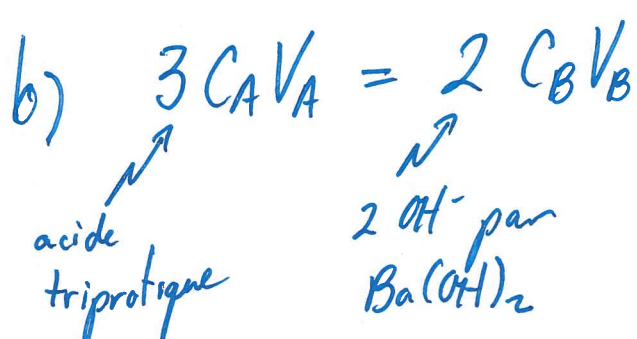 b) 3 CAVA = 2 CBVB
acide
triprotique
2 OH⁻ par
Ba(OH)₂